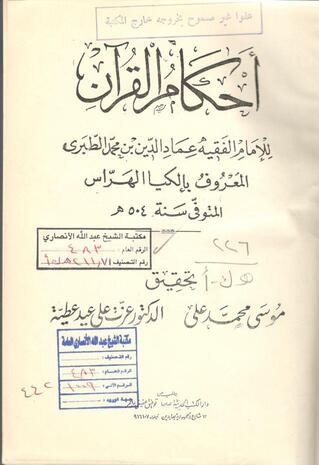 علوا غير مسموح بخروجه خارج المكتبة
أحكام القرآن
للإمام الفقيه عماد الدين بن محمد الطبرى
المعروف بإلكيا الهراس
المتوفى سنة ٥٠٤ هـ
مكتبة الشيخ عبد الله الأنصاري
الرقم العام: ٤٨٣
رقم التصنيف:
٢٢٦
تحقيق
موسى محمد على
الدكتور عزت على عيد عطية
مكتبة الشيخ عبد الله الأنصاري العامة
رقم التصنيف:
الرقم العام: ٤٨٣
الرقم الآلي: ١٠٠٩
٤٤٢
دار الكتب الحديثة